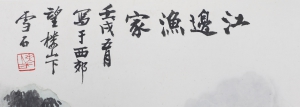 江邊漁家
壬戌五月
寫于西郊
望楼山下
雪石